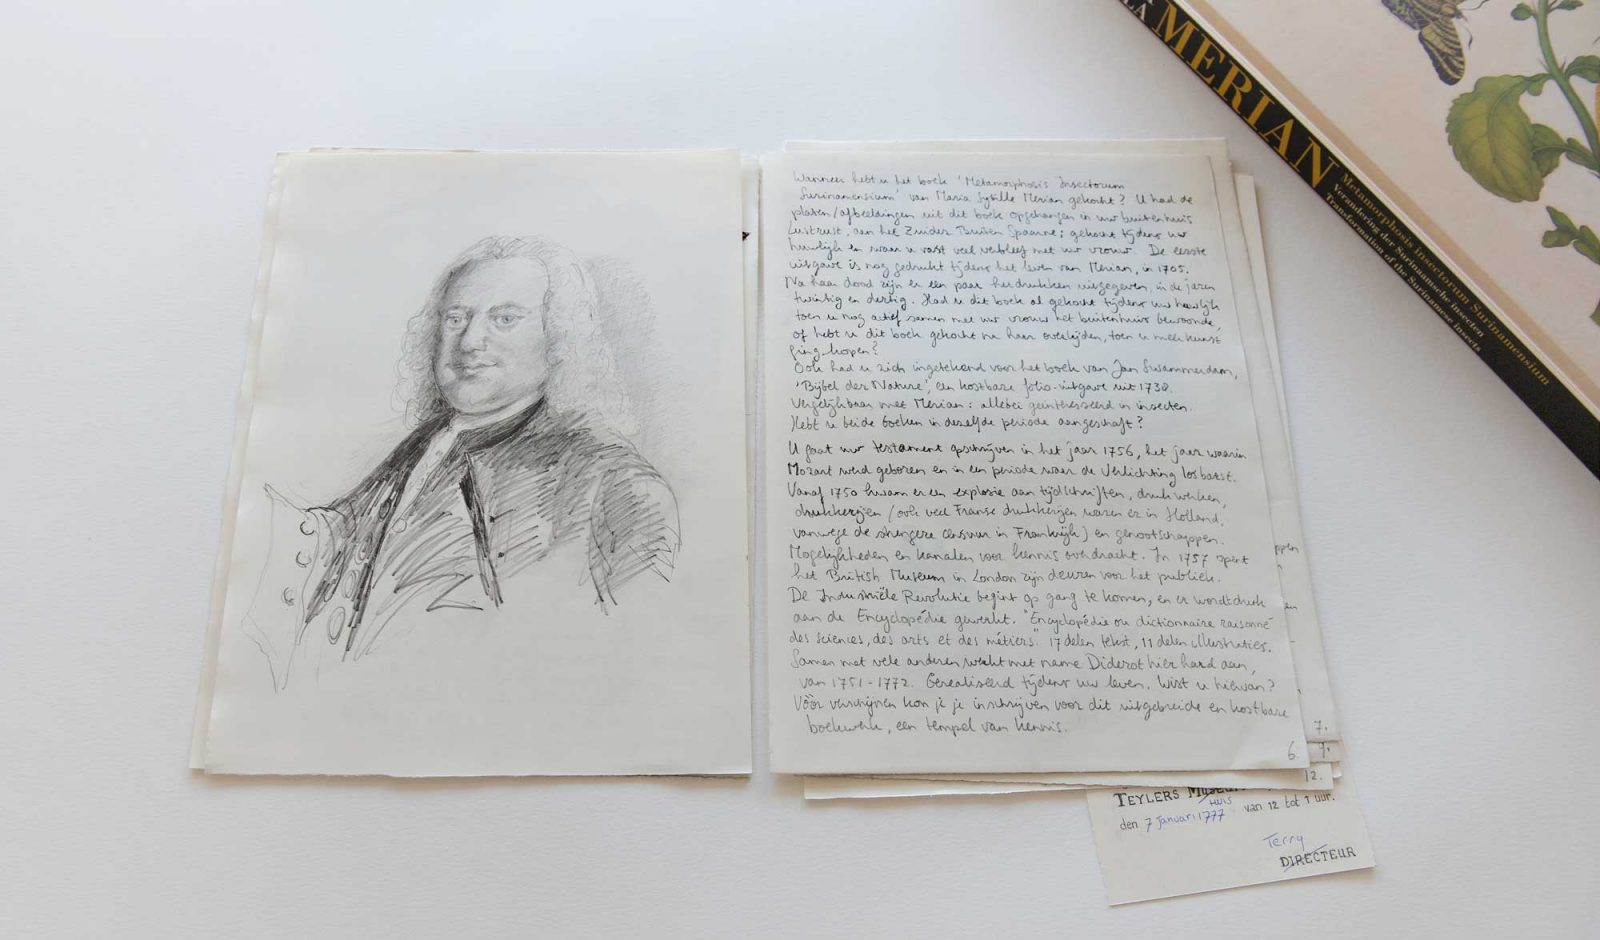 Wanneer hebt u het boek 'Metamorphosis Insectorum
Surinamensium' van Maria Sybille Merian gekocht? U had de
platen/afbeeldingen uit dit boek opgehangen in uw buitenhuis
Lustrust, aan het Zuider Buiten Spaarne; gekocht tijdens uw
huwelijk en waar u vast veel verbleef met uw vrouw. De eerste
uitgave is nog gedrukt tijdens het leven van Merian, in 1705.
Na haar dood zijn er een paar herdrukken uitgegeven, in de jaren
twintig en dertig. Had u dit boek al gekocht tijdens uw huwelijk
toen u nog actief samen met uw vrouw het buitenhuis bewoonde,
of hebt u dit boek gekocht na haar overlijden, toen u meer kunst
ging kopen?
Ook had u zich ingetekend voor het boek van Jan Swammerdam,
'Bijbel der Nature', een kostbare folio-uitgave uit 1738.
Vergelijkbaar met Merian: allebei geïnteresseerd in insecten.
Hebt u beide boeken in dezelfde periode aangeschaft?
U gaat uw testament opschrijven in het jaar 1756, het jaar waarin
Mozart werd geboren en in een periode waar de Verlichting losbarst.
Vanaf 1750 kwam er een explosie aan tijdschriften, drukwerken,
drukkerijen (ook veel Franse drukkerijen waren er in Holland,
vanwege de strengere censuur in Frankrijk) en genootschappen.
Mogelijkheden en kanalen voor kennis overdracht. In 1757 opent
het British Museum in London zijn deuren voor het publiek.
De Industriële Revolutie begint op gang te komen, en er wordt druk
aan de Encyclopédie gewerkt. "Encyclopédie ou dictionnaire raisonné
des sciences, des arts et des métiers" 17 delen tekst, 11 delen illustraties.
Samen met vele anderen werkt met name Diderot hier hard aan,
van 1751-1772. Gerealiseerd tijdens uw leven. Wist u hiervan?
Vóór verschijnen kon je je inschrijven voor dit uitgebreide en kostbare
boekwerk, een tempel van kennis.
6.
7.
9.
12.
TEYLERS MUSEUM
HUIS
van 12 tot 1 uur.
den 7 Januari 1777
Terry
DIRECTEUR
LA MERIAN
Metamorphosis insectorum Surinamensium
Verandering der Surinaamsche insecten
Transformation of the Surinamese insects